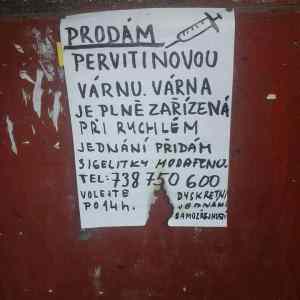 PRODÁM
PERVITINOVOU
VÁRNU. VÁRNA
JE PLNĚ ZAŘÍZENÁ
PŘI RYCHLÉM
JEDNÁNÍ PŘIDÁM
SIGELITKY HODAFENU.
TEL: 738 750 600
VOLEJTE DYSKRETNÍ
PO 14h. JEDNÁNÍ
SAMOZŘEJMOSTÍ